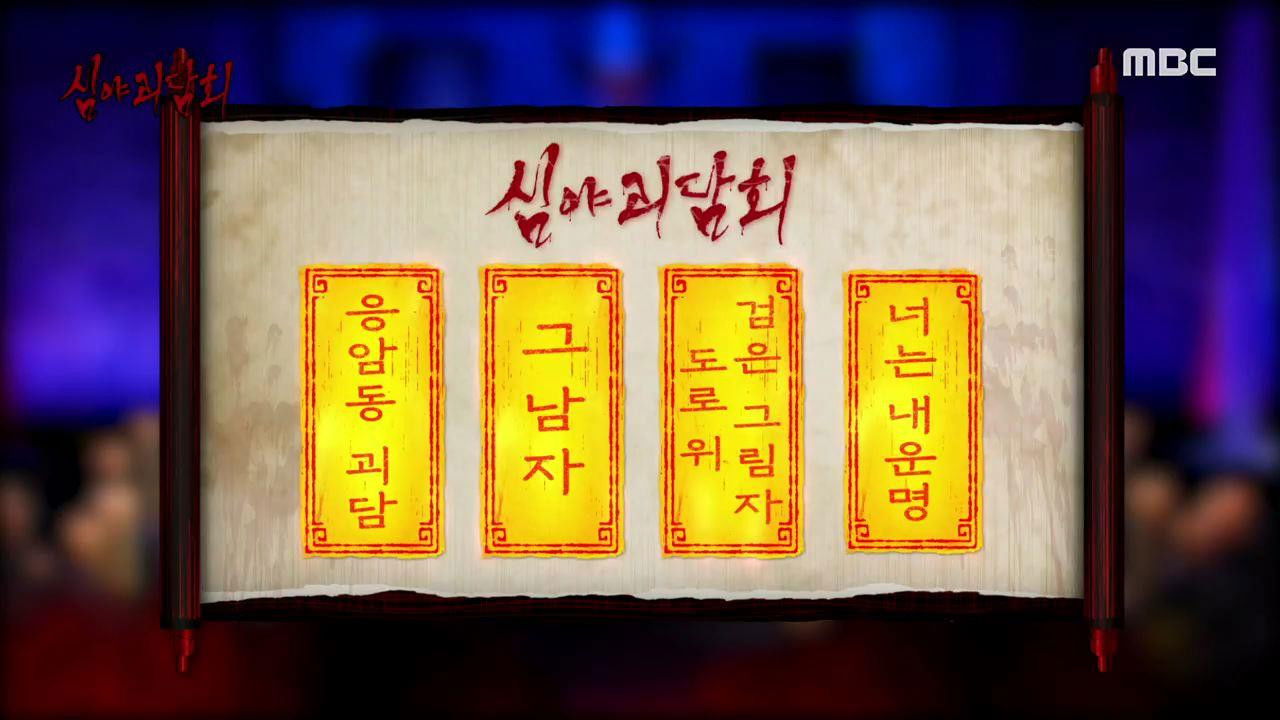 심야괴담회
MBC
심야괴담회
응암동 괴담
그 남자
도로 위
검은 그림자
너는 내 운명